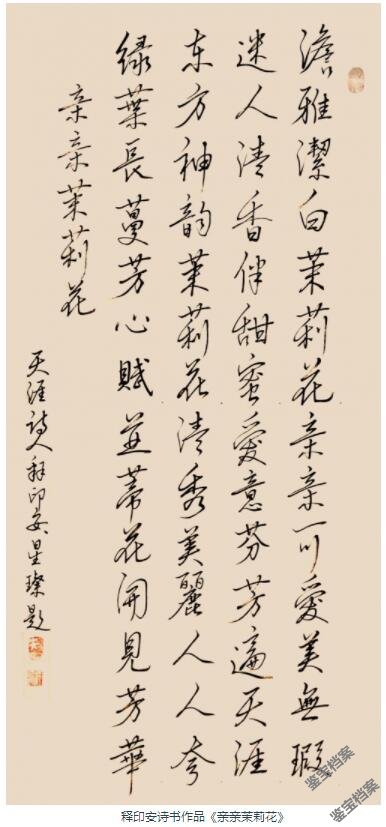 澹雅潔白茉莉花亲亲可愛美無瑕
迷人清香伴甜蜜愛意芬芳遍天涯
东方神韵茉莉花清秀美麗人人夸
绿葉長蔓芳心賦並蒂花開見芳華
亲亲茉莉花
天涯詩人释印安星璨題
鉴宝档案
鉴宝档案
释印安诗书作品《亲亲茉莉花》